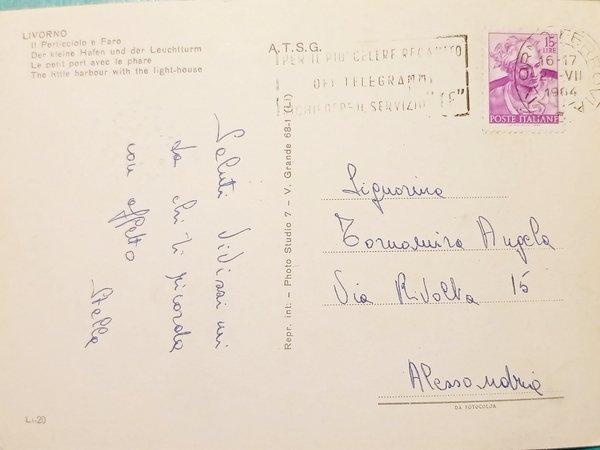 LIVORNO
Il Porticciolo e Faro
Der kleine Hafen und der Leuchtturm
Le petit port avec le phare
The little harbour with the light-house
A.T.S.G.
PER IL PIÙ CELERE RECAPITO
DEI TELEGRAMMI
CHIEDERE IL SERVIZIO
LIVORNO FERROVIA
16-17
VII
1964
15
LIRE
POSTE ITALIANE
Saluti Vivissimi
da chi ti ricorda
con affetto
Stella
Repr. int. - Photo Studio 7 - V. Grande 68-1 (LI)
Signorina
Tornamira Angela
Via Rivolta 15
Alessandria
DA FOTOCOLOR
Li-20